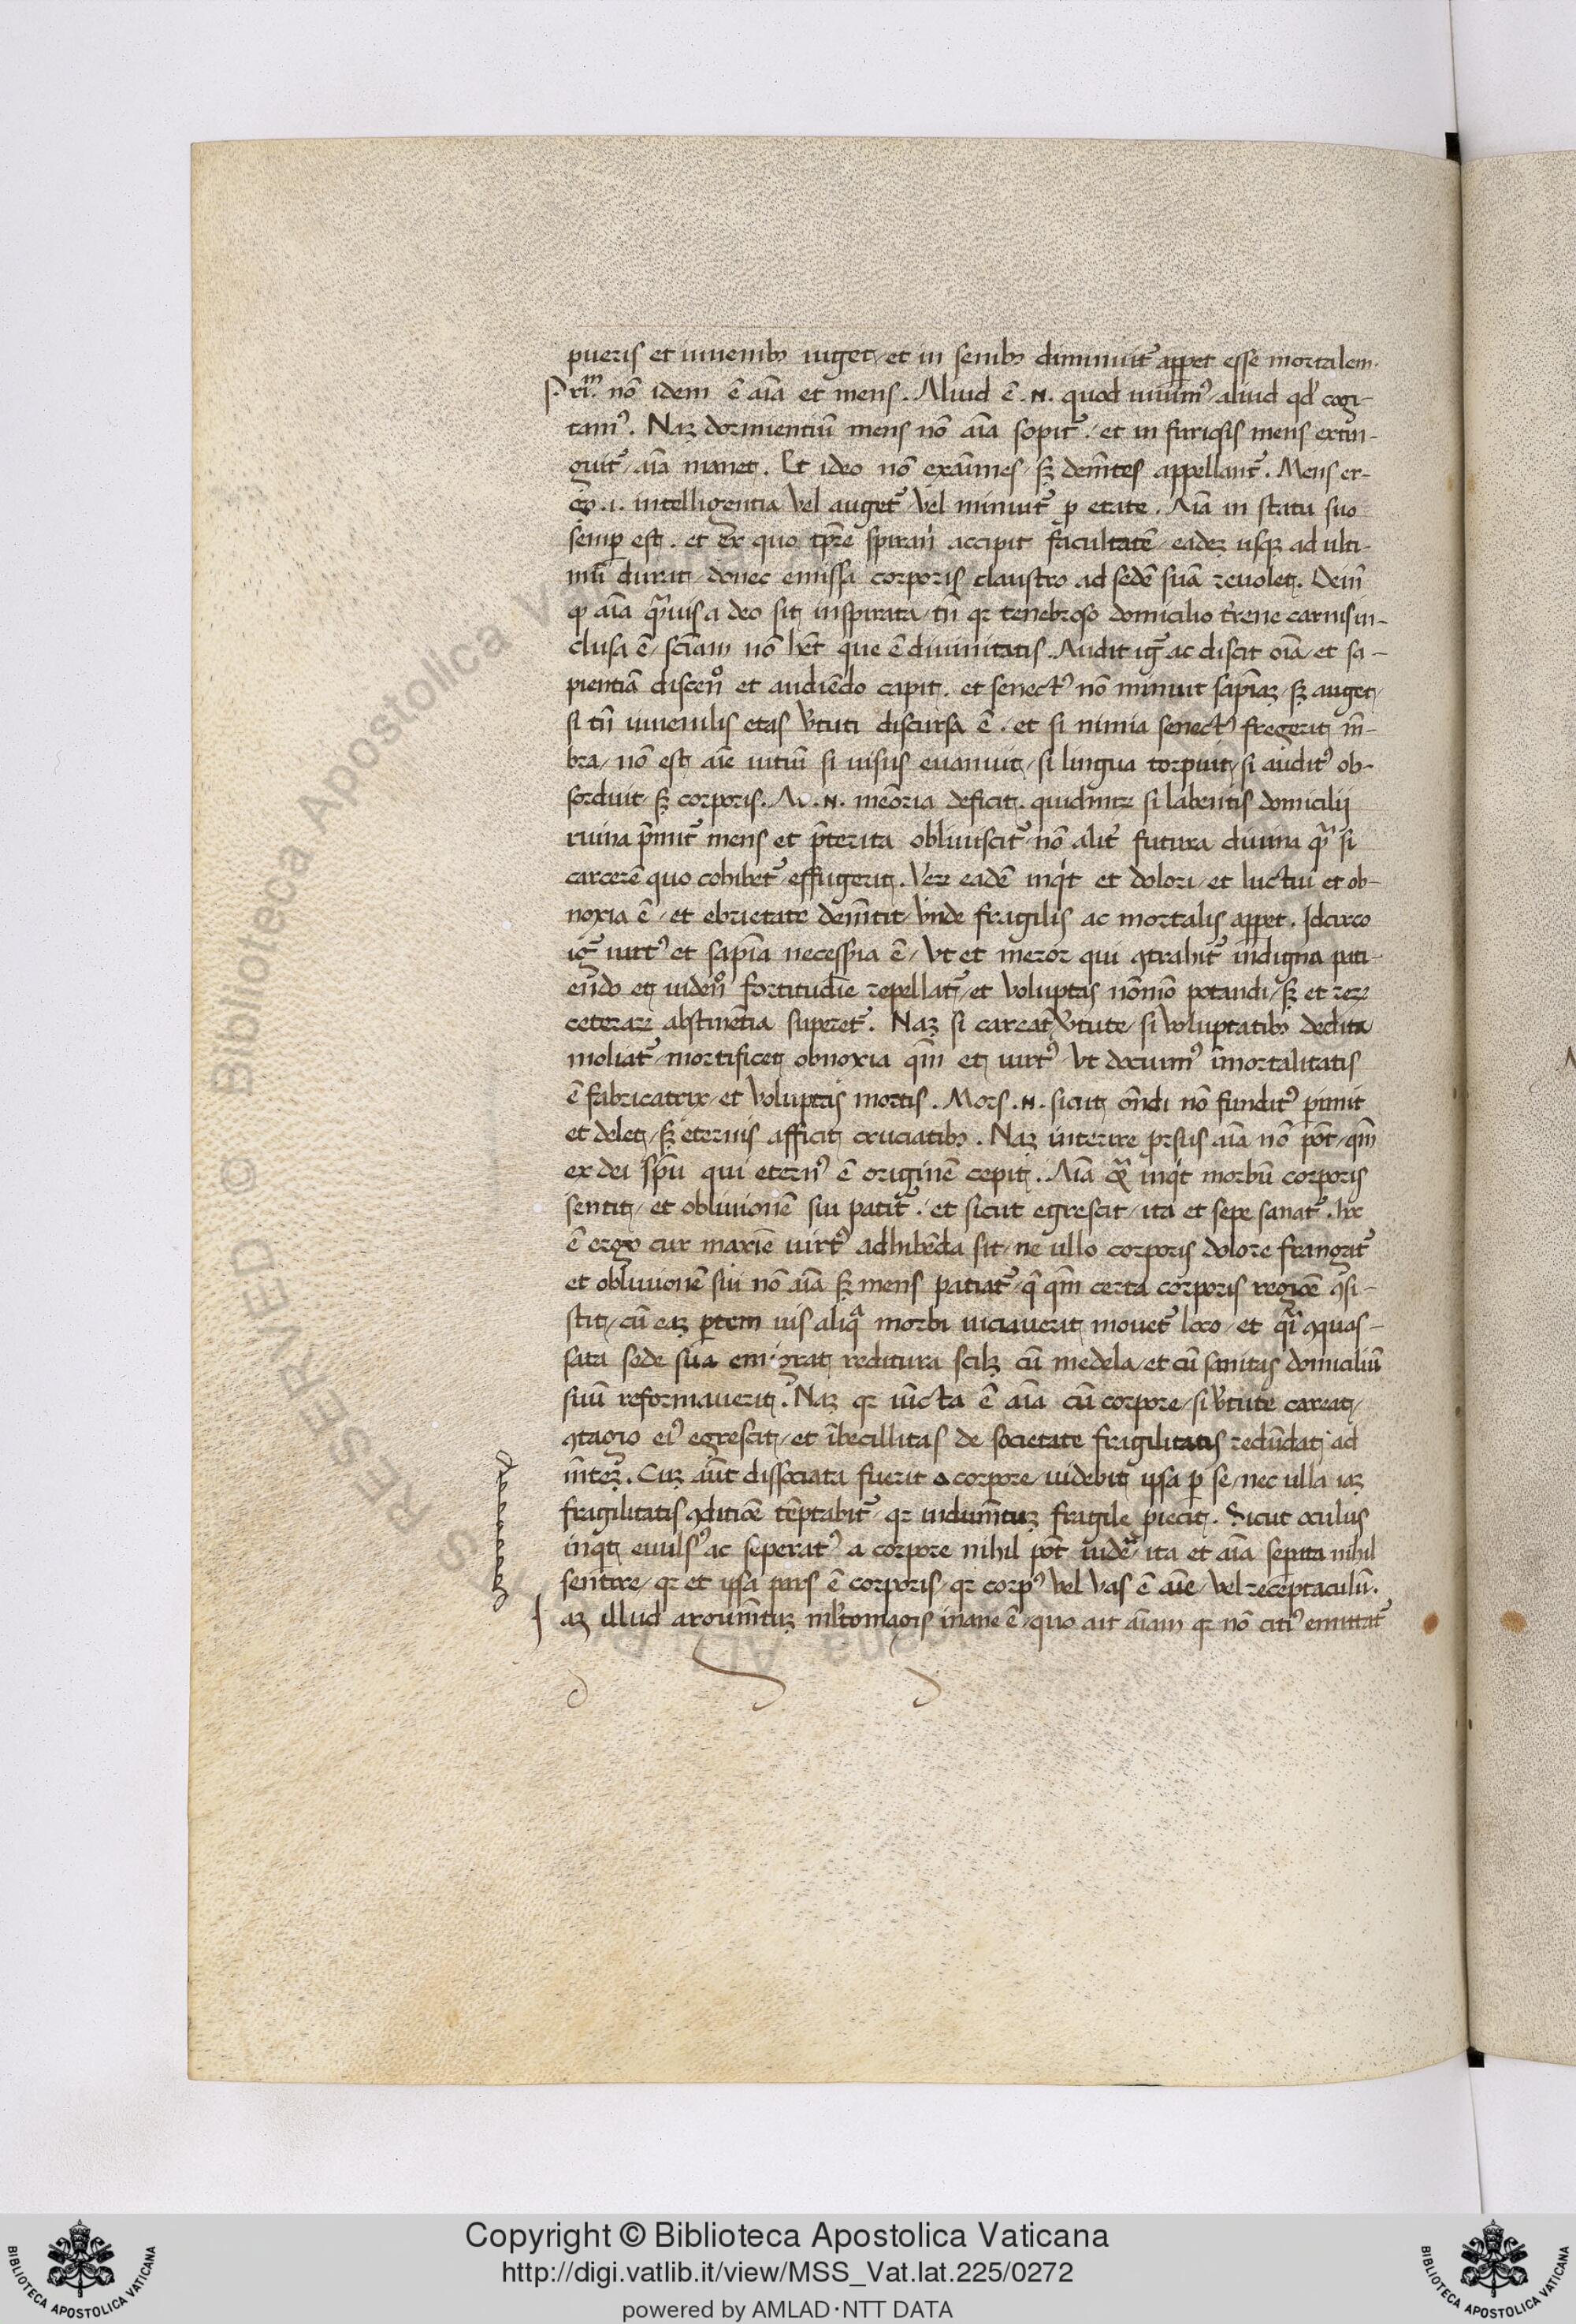 pueris et iuuenibꝫ uiget / et in senibꝫ diminuit᷑ apꝑet esse mortalem.
P.rīm. nō idem ē aīa et mens. Aliud ē .N. quod uiuimꝰ / aliud qd̛ cogi-
tamꝰ. Naꝫ dormientiū mens nō aīa sopit᷑. / et in furiosis mens extin-
guit᷑ / aīa manet. Et ideo nō exaīmes / sꝫ demētes appellant᷑. Mens er-
go .i. intelligentia vel auget᷑ vel minuit᷑ ꝑ etate. Aīa in statu suo
semꝑ est. et ex quo tp̄re spirandi accipit facultatē / eadeꝫ usqꝫ ad ulti-
mū durat / donec emissa corporis claustro ad sedē suā reuolet. Dein̄
ꝙ aīa q̄uis a deo sit inspirata / tn̄ qꝛ tenebroso domicilio t̄rene carnis in-
clusa ē / sciām nō het̄ que ē diuinitatis. Audit ig᷑ ac discit oīa / et sa-
pientiā discen̄o et audiēdo capit. et senectꝰ nō minuit sapīaꝫ / sꝫ auget /
si tn̄ iuuenilis etas v̄tuti discursa ē. et si nimia senectꝰ fregerit mē-
bra / nō est aīe uitiū si uisus euanuit / si lingua torpuit / si auditꝰ ob-
sorduit / sꝫ corporis. At .N. memōria deficit. quidnire si labentis domicilij
ruina p̄mit᷑ mens et p̄terita obliuiscit᷑ / nō alit᷑ futura diuina q̄ si
carcerē quo cohibet᷑ / effugerit. Veꝝ eadē inqt et dolori / et luctui et ob-
noxia ē / et ebrietate demētit / vnde fragilis ac mortalis apꝑet. Idcirco
ig᷑ uirtꝰ et sapīa necessīa ē / vt et meror qui ꝯtrahit᷑ indigna pati-
endo et uiden̄o fortitudīe repellat᷑ / et voluptas nō mō potandi / sꝫ et reꝝ
ceteraꝝ abstinētia superet᷑. Naꝫ si careat v̄tute / si voluptatibꝫ dedita
moliat᷑ / mortificet obnoxia qm̄ et uirtꝰ vt docuimꝰ īmortalitatis
ē fabricatrix / et voluptas mortis. Mors .N. sicut on̄di nō funditꝰ ꝑimit
et delet / sꝫ eternis afficit cruciatibꝫ. Naꝫ interire prsus aīa nō pōt / qm̄
ex dei sp̄u qui eternꝰ ē originē cepit. Aīa inqt morbū corporis
sentit / et obliuionē sui patit᷑. / et sicut egrescit / ita et sepe sanat᷑. hec
ē ergo cur maxīe uirtꝰ adhibēda sit / ne ullo corporis dolore frangat᷑
et obliuionē sui nō aīa sꝫ mens patiat᷑ / q̄ qm̄ certa corporis regiōe ꝯsi-
stit / cū eaꝫ ꝑtem uis aliqa morbi uiciauerit mouet᷑ loco / et qī ꝯquas-
sata sede sua emigrat reditura scilꝫ cū medela / et cū sanitas domiciliū
suū reformauerit. Naꝫ qꝛ iūcta ē aīa cū corpore / si v̄tute careat /
ꝯtagio eiꝰ egrescit / et ībecillitas de societate fragilitatis redūdat ad
mēteꝫ. Cuꝫ aūt dissociata fuerit a corpore / uidebit ipsa ꝑ se / nec ulla iaꝫ
fragilitatis ꝯditiōe tēptabit᷑ / qꝛ indumētuꝫ fragile piecit. Sicut oculus
inqt euulsꝰ ac seperatꝰ a corpore nihil pōt uidere / ita et aīa sepata nihil
sentire / qꝛ et ipsa pars ē corporis / qꝛ corpꝰ vel vas ē aīe / vel receptaculū.
I aꝫ illud argumētuꝫ mltomagis inane ē / quo ait aīam qꝛ nō citiꝰ emittat᷑
Copyright © Biblioteca Apostolica Vaticana
http://digi.vatlib.it/view/MSS_Vat.lat.225/0272
powered by AMLAD·NTT DATA